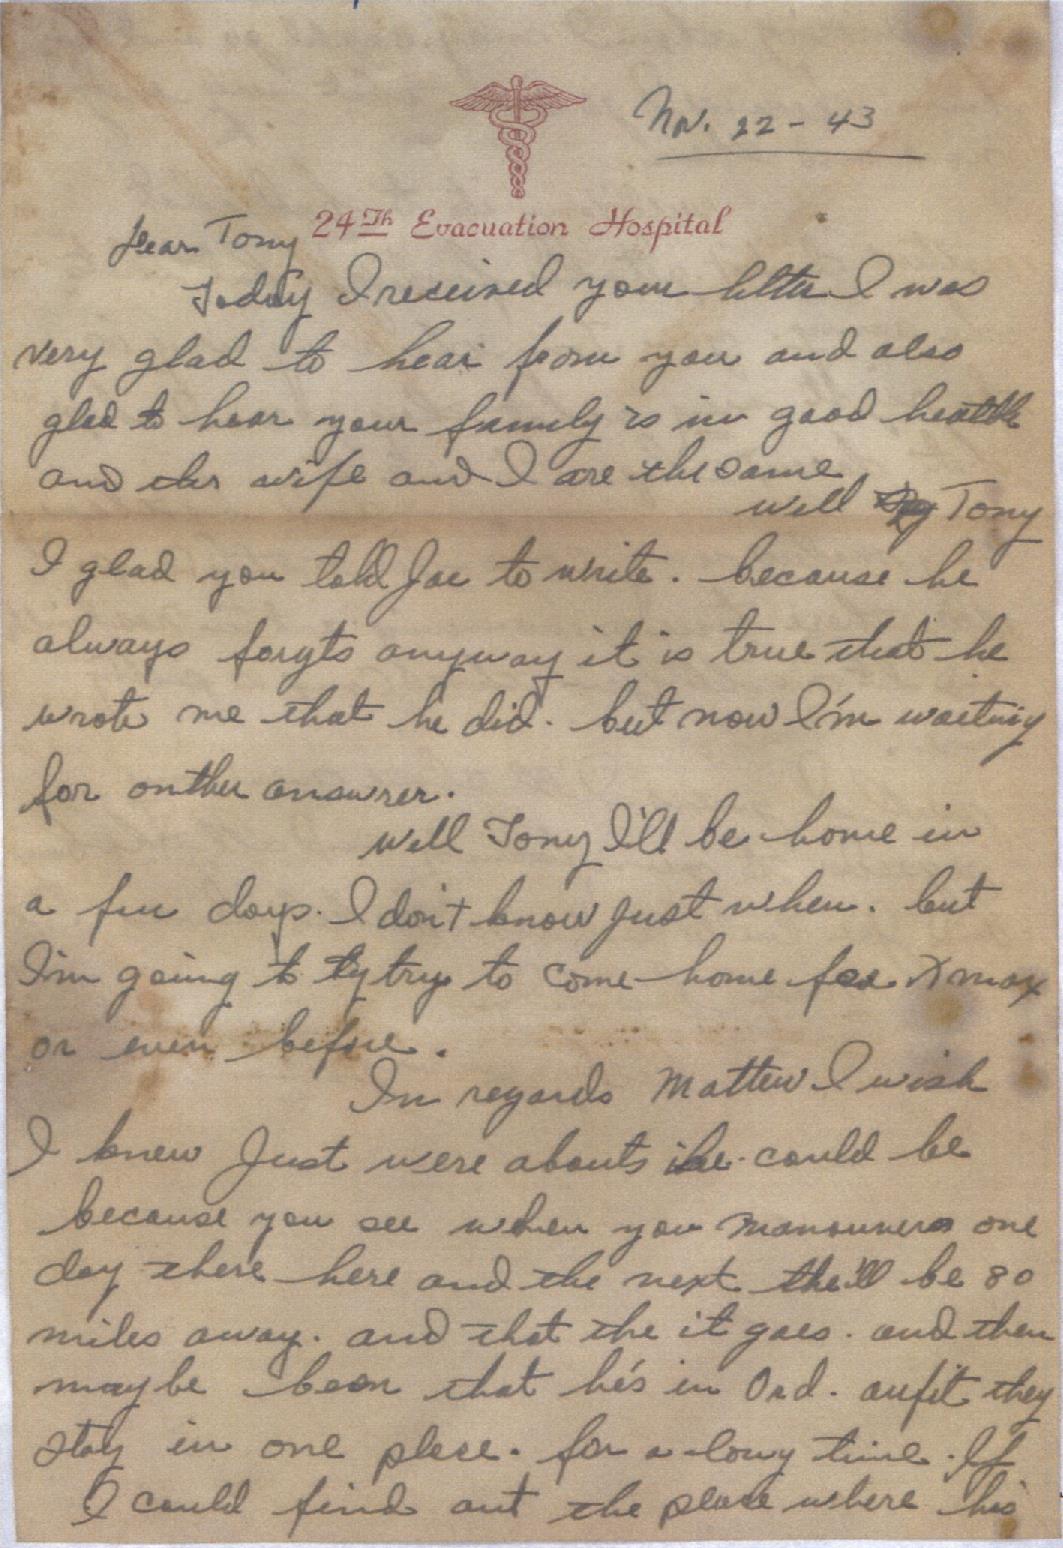 Nov. 22 - 43
24Th Evacuation Hospital
Dear Tony
Today I received your letter I was
very glad to hear from you and also
glad to hear your family is in good health
and the wife and I are the same.
Well Tony
I glad you told Joe to write. because he
always forgts anyway it is true that he
wrote me that he did. but now I'm waiting
for onther answer.
Well Tony I'll be home in
a few days. I don't know just when. but
I'm going to ty try to come home for Xmax
or even before.
In regards Mattew I wish
I knew Just were abouts he could be
because you see when you manouvers one
day there here and the next the'll be 80
miles away. and that the it goes. and then
maybe been that he's in Ord. aufit they
stay in one place. for a long time. If
I could find out the place where his